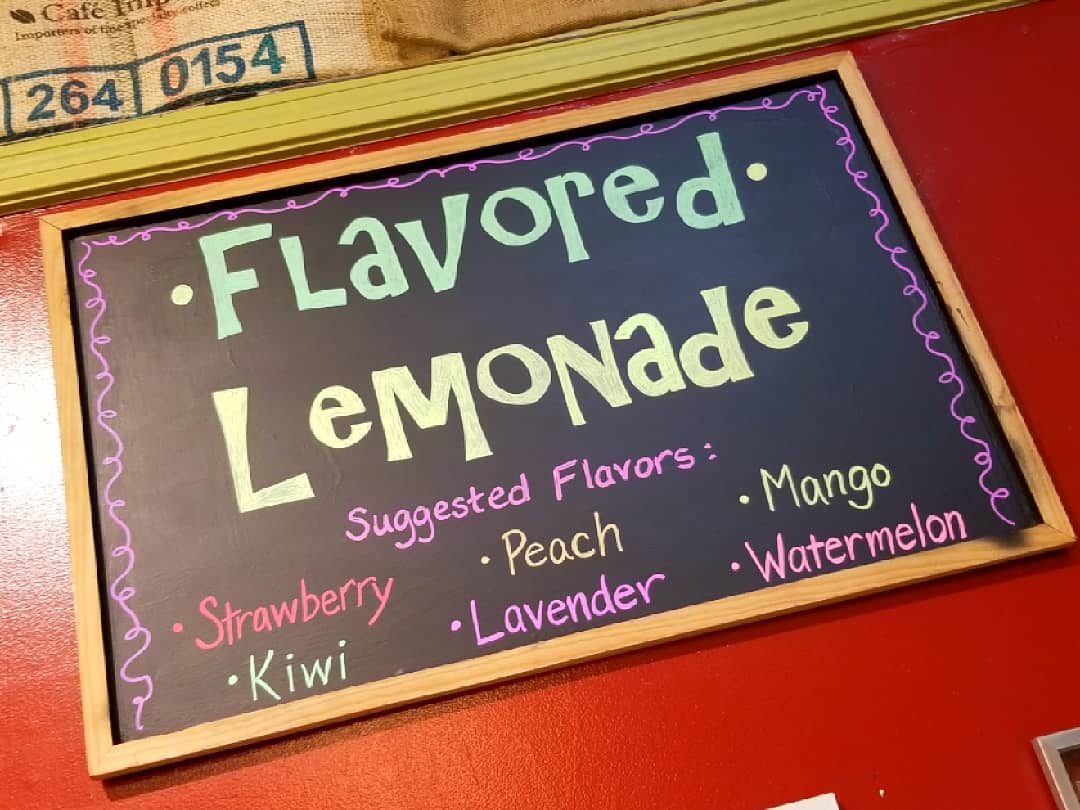 Café Imp
Importers of fine specialty coffees
264 0154
• Flavored •
Lemonade
Suggested Flavors:
• Strawberry
• Kiwi
• Peach
• Lavender
• Mango
• Watermelon